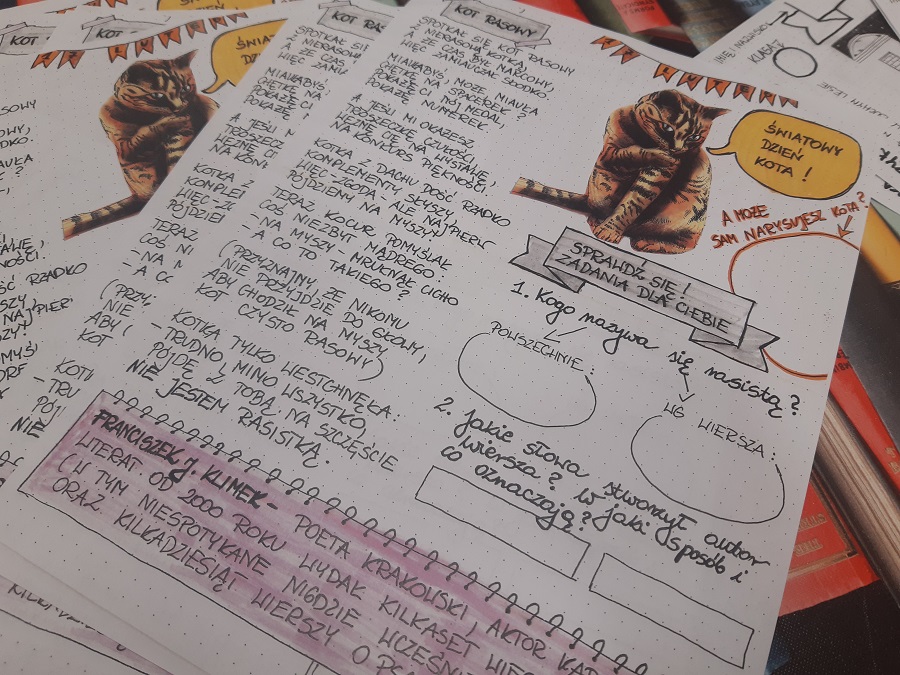 KOT RASOWY
SPOTKAŁ SIĘ KOT RASOWY
Z NIERASOWĄ KOTKĄ,
A ŻE CZAS BYŁ MARCOWY,
WIĘC ZAMIAUCZAŁ SŁODKO.
MIAŁABYŚ, MOŻE, MIAUŁA
CHĘTKĘ NA SPACEREK?
POKAŻĘ CI MÓJ MEDAL,
POKAŻĘ NUMEREK.
A JEŚLI MI OKAŻESZ
TROSZECZKĘ CZUŁOŚCI,
WEZMĘ CIĘ NA WYSTAWĘ,
NA KONKURS PIĘKNOŚCI.
KOTKA Z DACHU DOŚĆ RZADKO
KOMPLEMENTY SŁYSZY,
WIĘC -ZGODA- ALE NAJPIERW
PÓJDZIEM NA MYSZY!
TERAZ KOCUR POMYŚLAŁ
COŚ NIEZBYT MĄDREGO.
-NA MYSZY -MRUKNĄŁ CICHO
- A CO TO TAKIEGO?
(PRZYZNAJMY, ŻE NIKOMU
NIE PRZYJDZIE DO GŁOWY,
ABY CHODZIŁ NA MYSZY
KOT CZYSTO RASOWY)
KOTKA TYLKO WESTCHNĘŁA:
-TRUDNO, MIMO WSZYSTKO,
PÓJDĘ Z TOBĄ, NA SZCZĘŚCIE
NIE JESTEM RASISTKĄ.
FRANCISZEK J. KLIMEK- POETA KRAKOWSKI, AKTOR
LITERAT OD 2000 ROKU WYDAŁ KILKASET
(W TYM NIESPOTYKANE NIGDZIE
ORAZ KILKADZIESIĄT WIERSZY O
ŚWIATOWY
DZIEŃ
KOTA!
A MOŻE
SAM NARYSUJESZ KOTA?
SPRAWDŹ SIĘ!
ZADANIA DLA CIEBIE
1. Kogo nazywa się rasistą?
POWSZECHNIE:
WG WIERSZA:
2. Jakie słowa stworzył autor
wiersza? W jaki sposób i
co oznaczają?
IMIĘ I NAZWISKO
KLASA